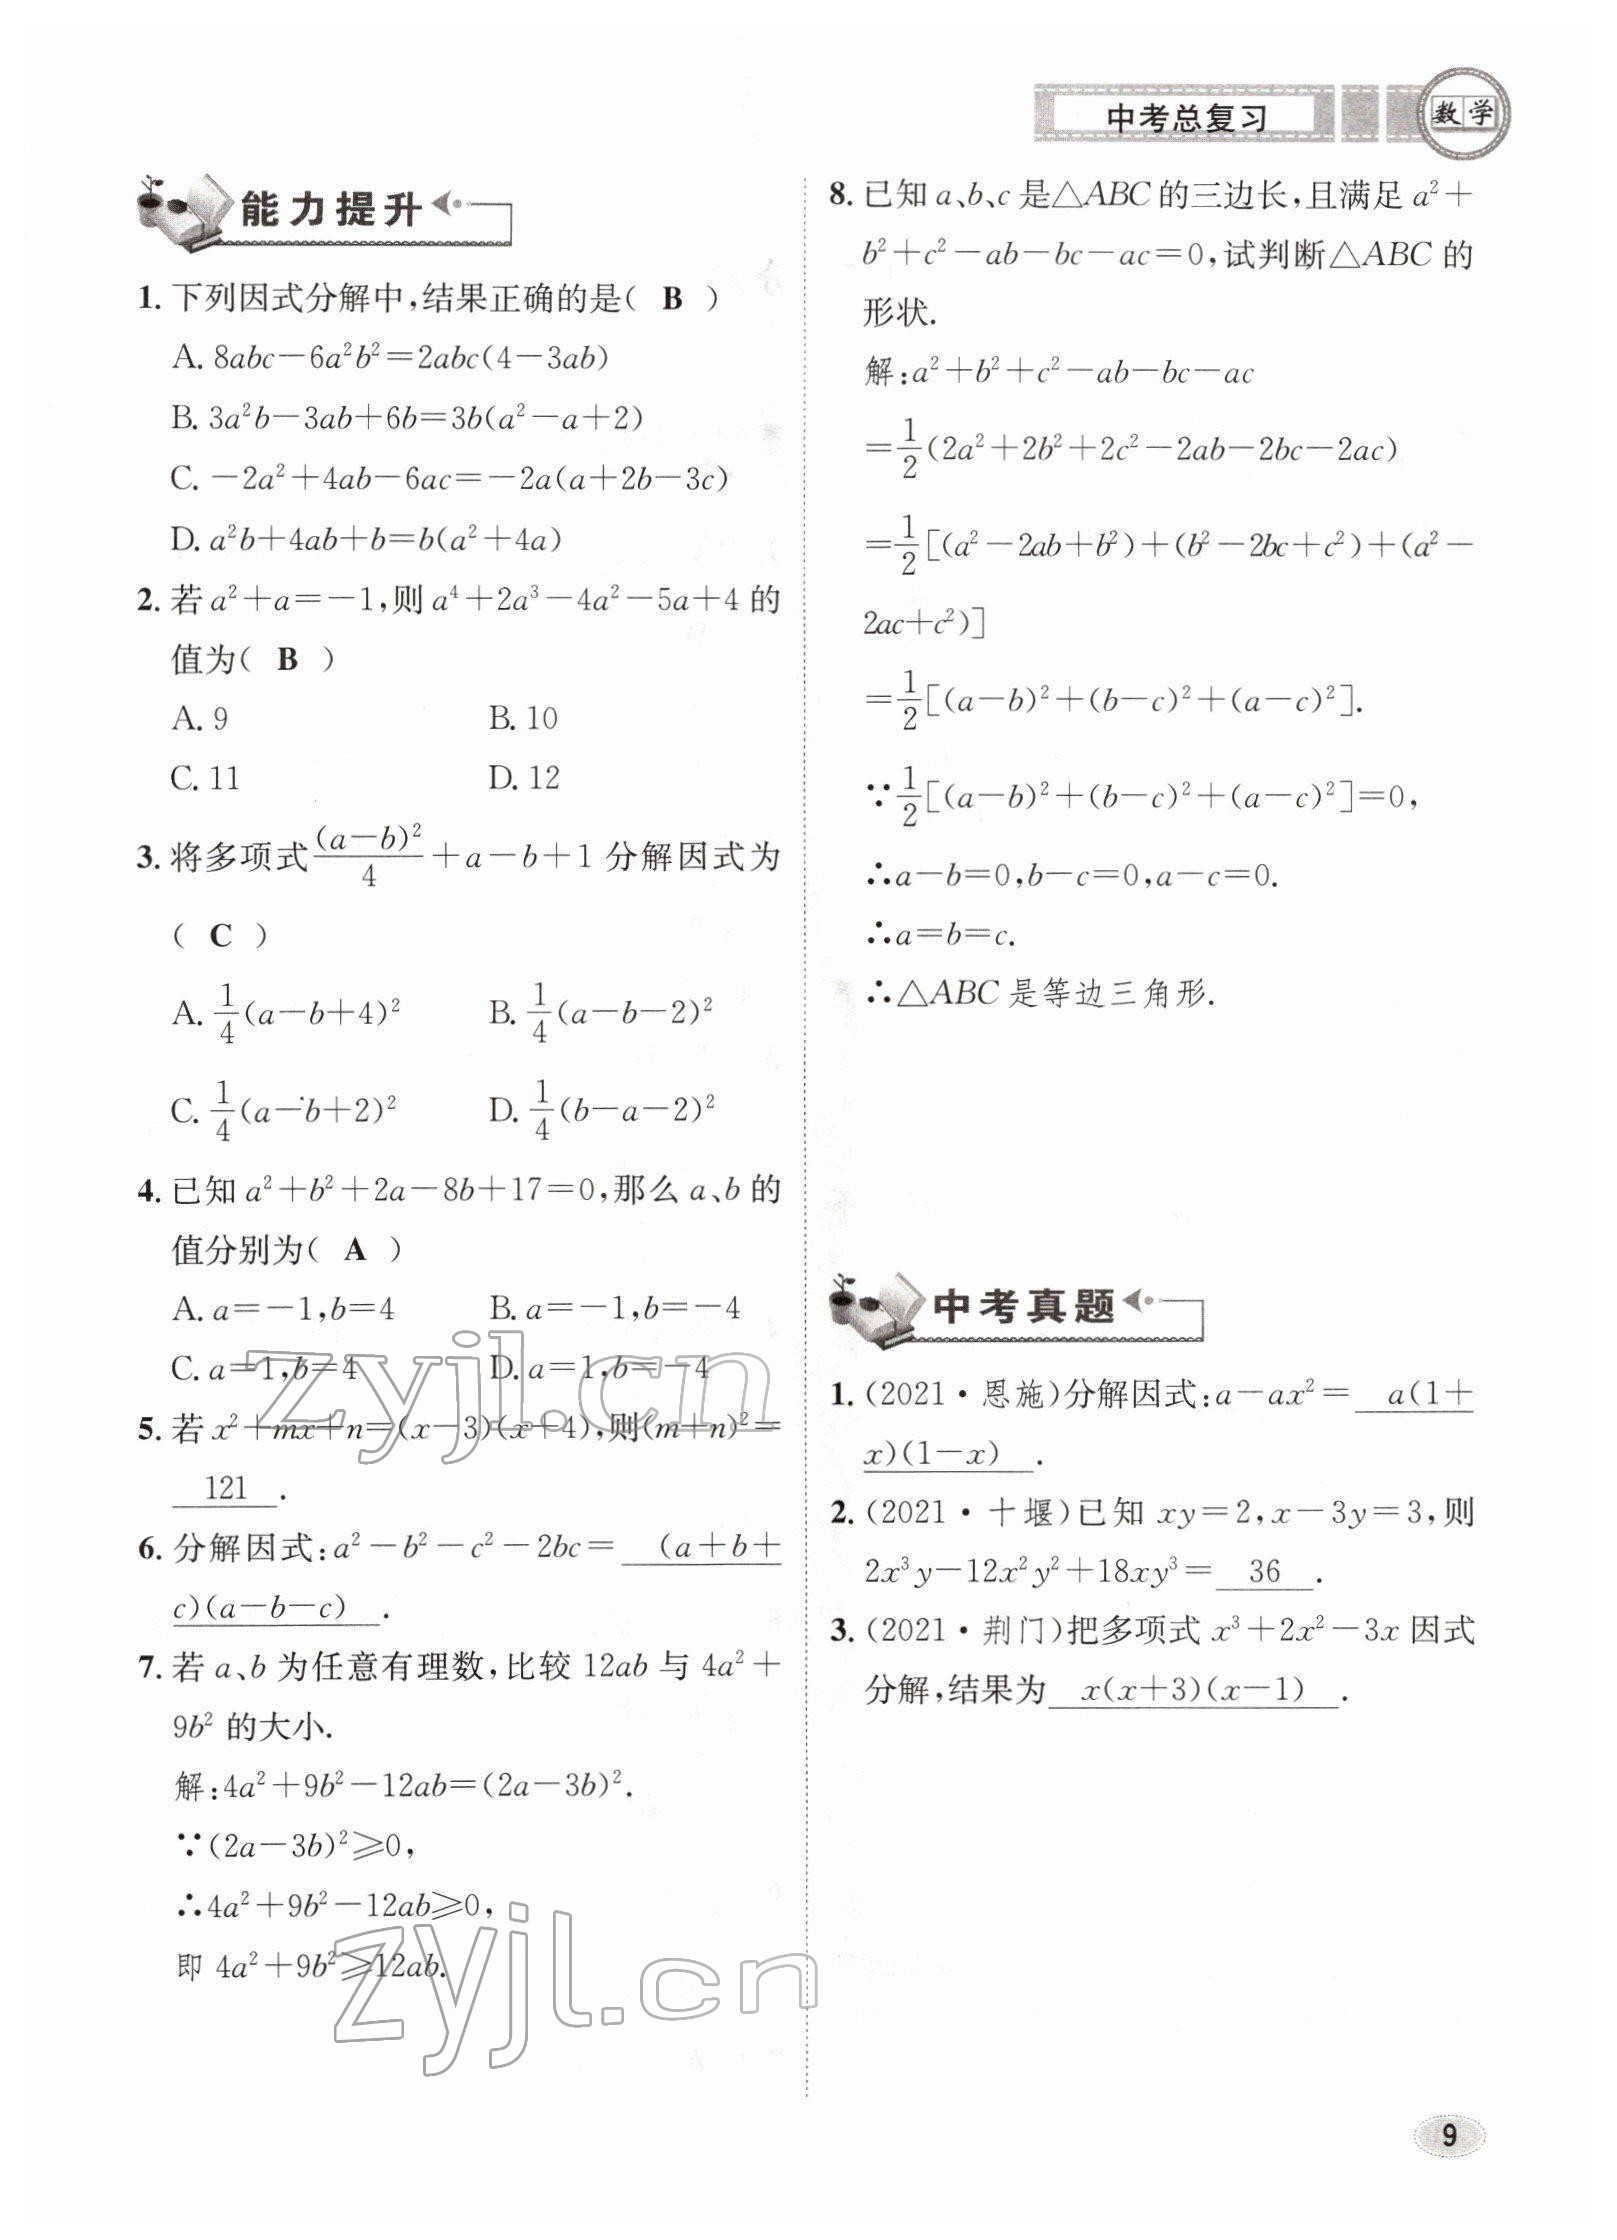 中考总复习
数学
能力提升
1. 下列因式分解中,结果正确的是( B )
A. 8abc-6a²b²=2abc(4-3ab)
B. 3a²b-3ab+6b=3b(a²-a+2)
C. -2a²+4ab-6ac=-2a(a+2b-3c)
D. a²b+4ab+b=b(a²+4a)
2. 若 a²+a=-1,则 a⁴+2a³-4a²-5a+4 的
值为( B )
A. 9 B. 10
C. 11 D. 12
3. 将多项式(a-b)²/4+a-b+1 分解因式为
( C )
A. 1/4(a-b+4)² B. 1/4(a-b-2)²
C. 1/4(a-b+2)² D. 1/4(b-a-2)²
4. 已知 a²+b²+2a-8b+17=0,那么 a、b 的
值分别为( A )
A. a=-1,b=4 B. a=-1,b=-4
C. a=1,b=4 D. a=1,b=-4
5. 若 x²+mx+n=(x-3)(x+4),则(m+n)²=
121 .
6. 分解因式:a²-b²-c²-2bc= (a+b+
c)(a-b-c) .
7. 若 a、b 为任意有理数,比较 12ab 与 4a²+
9b² 的大小.
解:4a²+9b²-12ab=(2a-3b)².
∵(2a-3b)²≥0,
∴4a²+9b²-12ab≥0,
即 4a²+9b²≥12ab.
8. 已知 a、b、c 是△ABC 的三边长,且满足 a²+
b²+c²-ab-bc-ac=0,试判断△ABC 的
形状.
解:a²+b²+c²-ab-bc-ac
=1/2(2a²+2b²+2c²-2ab-2bc-2ac)
=1/2[(a²-2ab+b²)+(b²-2bc+c²)+(a²-
2ac+c²)]
=1/2[(a-b)²+(b-c)²+(a-c)²].
∵1/2[(a-b)²+(b-c)²+(a-c)²]=0,
∴a-b=0,b-c=0,a-c=0.
∴a=b=c.
∴△ABC 是等边三角形.
中考真题
1. (2021·恩施)分解因式:a-ax²= a(1+
x)(1-x) .
2. (2021·十堰)已知 xy=2,x-3y=3,则
2x³y-12x²y²+18xy³= 36 .
3. (2021·荆门)把多项式 x³+2x²-3x 因式
分解,结果为 x(x+3)(x-1) .
zyjl.cn
zyjl.cn
9